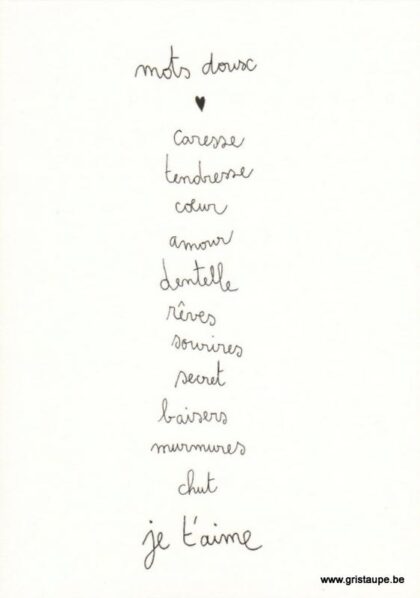 mots doux
♥
caresse
tendresse
cœur
amour
dentelle
rêves
sourires
secret
baisers
murmures
chut
je t'aime
www.gristaupe.be